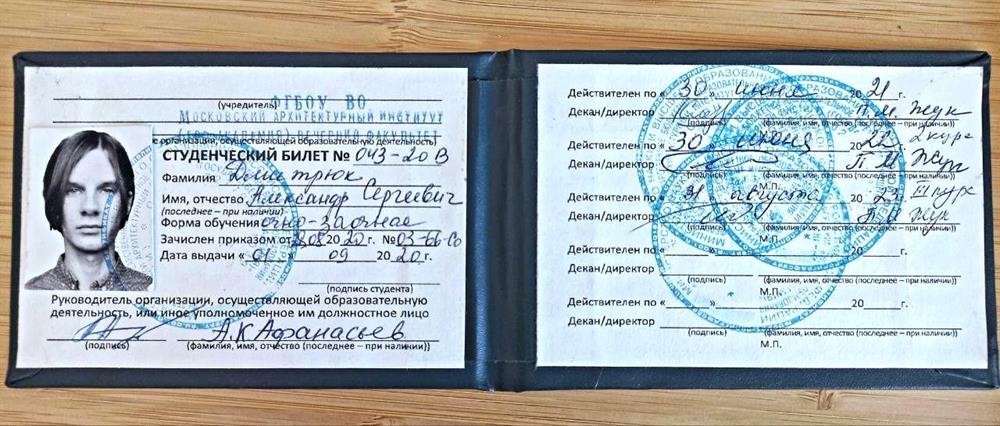 (учредитель)
ФГБОУ ВО
Московский архитектурный институт
(гос. академия) вечерний факультет
е организации, осуществляющей образовательную деятельность)
СТУДЕНЧЕСКИЙ БИЛЕТ № 043-20 В
Фамилия Дмитрюк
Имя, отчество Александр Сергеевич
(последнее – при наличии)
Форма обучения очно-заочная
Зачислен приказом от 2020 г. №03-66-со
Дата выдачи « 01 » 09 2020 г.
(подпись студента)
Руководитель организации, осуществляющей образовательную
деятельность, или иное уполномоченное им должностное лицо
А.К.Афанасьев
(подпись) (фамилия, имя, отчество (последнее – при наличии))
Действителен по « 30 » июня 2021 г.
Декан/директор П.М. Жук
(подпись) (фамилия, имя, отчество (последнее – при наличии))
Действителен по « 30 » июня 2022 г. 2 курс
Декан/директор П.М. Жук
(подпись) (фамилия, имя, отчество (последнее – при наличии))
М.П.
Действителен по « 31 » августа 2023 г. III курс
Декан/директор П.М. Жук
(подпись) (фамилия, имя, отчество (последнее – при наличии))
М.П.
Действителен по « » 20 г.
Декан/директор
(подпись) (фамилия, имя, отчество (последнее – при наличии))
М.П.
Действителен по « » 20 г.
Декан/директор
(подпись) (фамилия, имя, отчество (последнее – при наличии))
М.П.